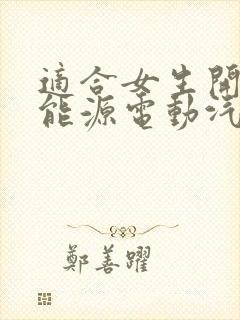 適合女生開
能源電動汽
鄭善躍